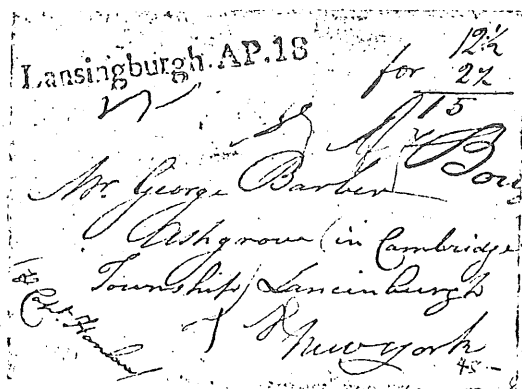 Lansingburgh. AP. 18
for 12½
2½
15
Mr
Mr. George Barber
Ashgrove (in Cambridge
Township) Lancinburgh
New York
45 -